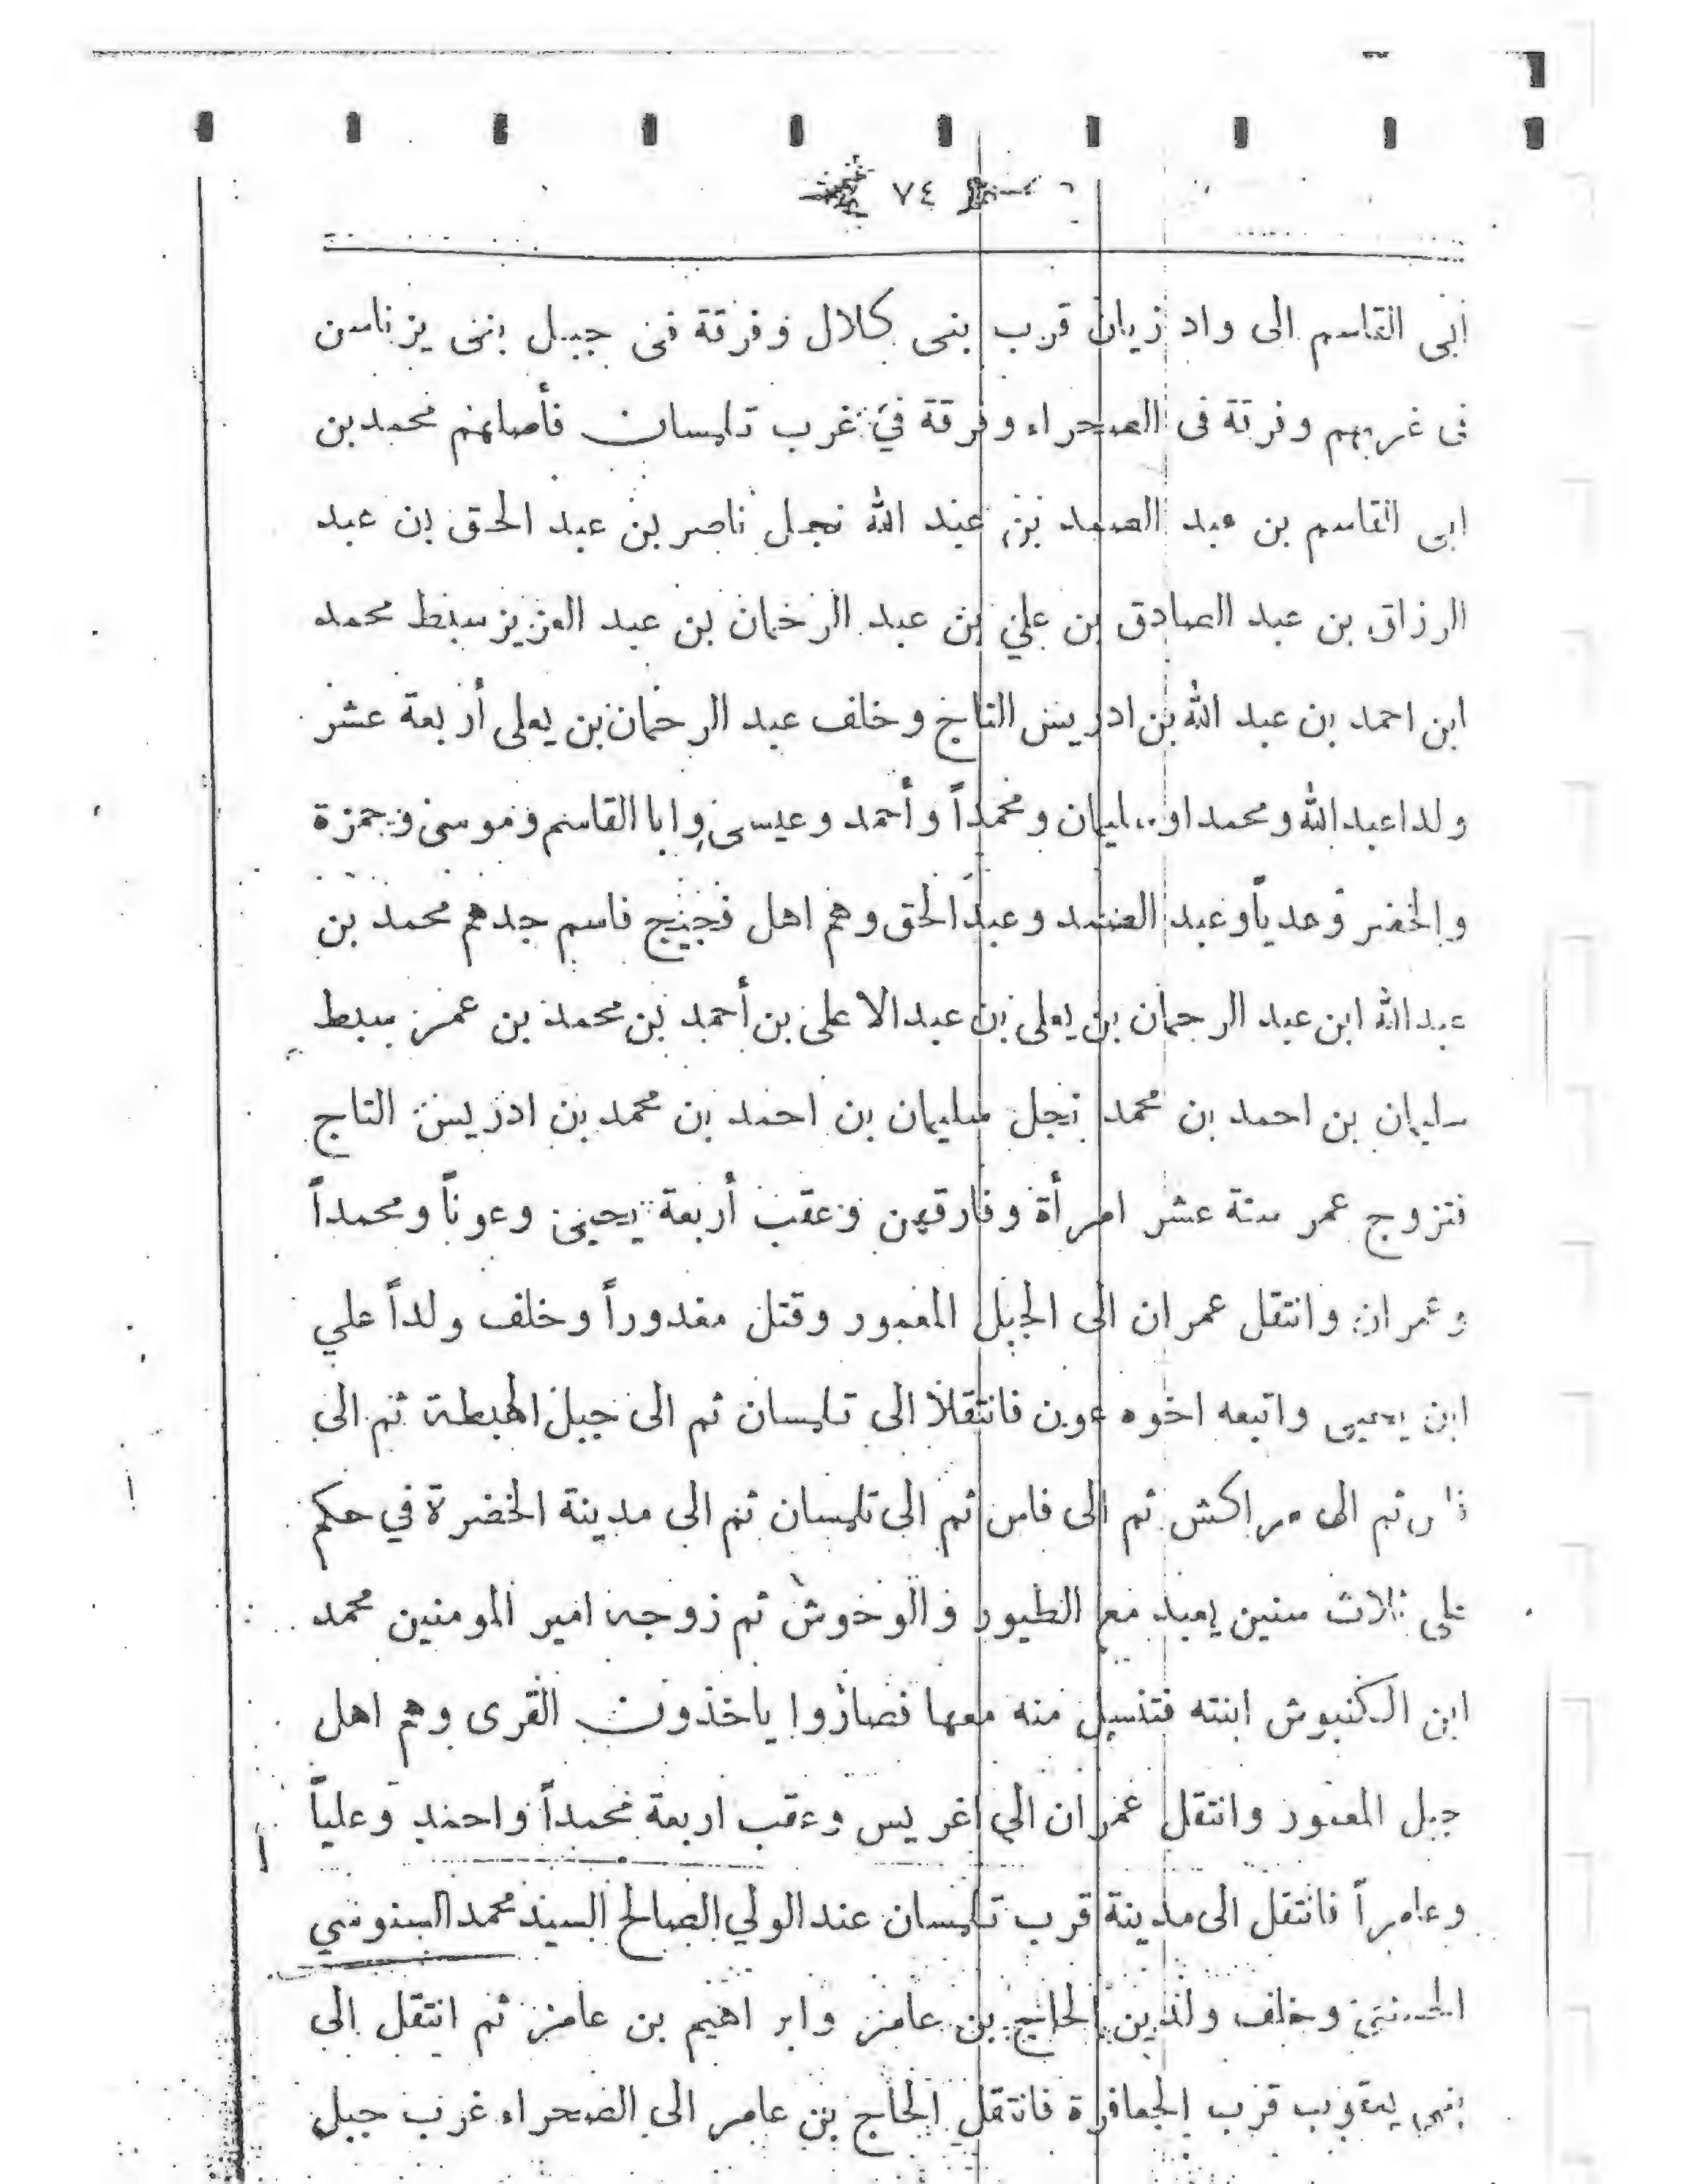 ٧٤
أبى القاسم الى واد زيان قرب بنى كلال وفرقة فى جبل بنى يزناسن
فى غربهم وفرقة فى الصحراء وفرقة في غرب تلمسان فأصلهم محمد بن
ابى القاسم بن عبد الصمد بن عبد الله نجل ناصر بن عبد الحق بن عبد
الرزاق بن عبد الصادق بن علي بن عبد الرحمان بن عبد العزيز سبط محمد
ابن احمد بن عبد الله بن ادريس التاج وخلف عبد الرحمان بن يعلى أربعة عشر
ولدا عبد الله ومحمدا وسليمان ومحمداً وأحمد وعيسى وابا القاسم وموسى وحمزة
والخضر وعدياً وعبد الصمد وعبد الحق وهم اهل فجيج فاسم جدهم محمد بن
عبد الله ابن عبد الرحمان بن يعلى بن عبد الاعلى بن أحمد بن محمد بن عمر سبط
سليمان بن احمد بن محمد نجل سليمان بن احمد بن محمد بن ادريس التاج
فتزوج عمر ستة عشر امرأة وفارقهن وعقب أربعة يحيى وعوناً ومحمداً
وعمران وانتقل عمران الى الجبل المعمور وقتل مغدوراً وخلف ولداً علي
ابن يحيى واتبعه اخوه عون فانتقلا الى تلمسان ثم الى جبل الهبطة ثم الى
فاس ثم الى مراكش ثم الى فاس ثم الى تلمسان ثم الى مدينة الخضرة في حكم
على ثلاث سنين يعبد مع الطيور والوحوش ثم زوجه امير المومنين محمد
ابن الكنبوش ابنته فتنسل منه معها فصاروا ياخذون القرى وهم اهل
جبل المعمور وانتقل عمران الي اغريس وعقب اربعة محمداً واحمد وعلياً
وعامراً فانتقل الى مدينة قرب تلمسان عند الولي الصالح السيد محمد السنوسي
الحسنى وخلف ولدين الحاج بن عامر وابراهيم بن عامر ثم انتقل الى
بنى يعقوب قرب الجعافرة فانتقل الحاج بن عامر الى الصحراء غرب جبل